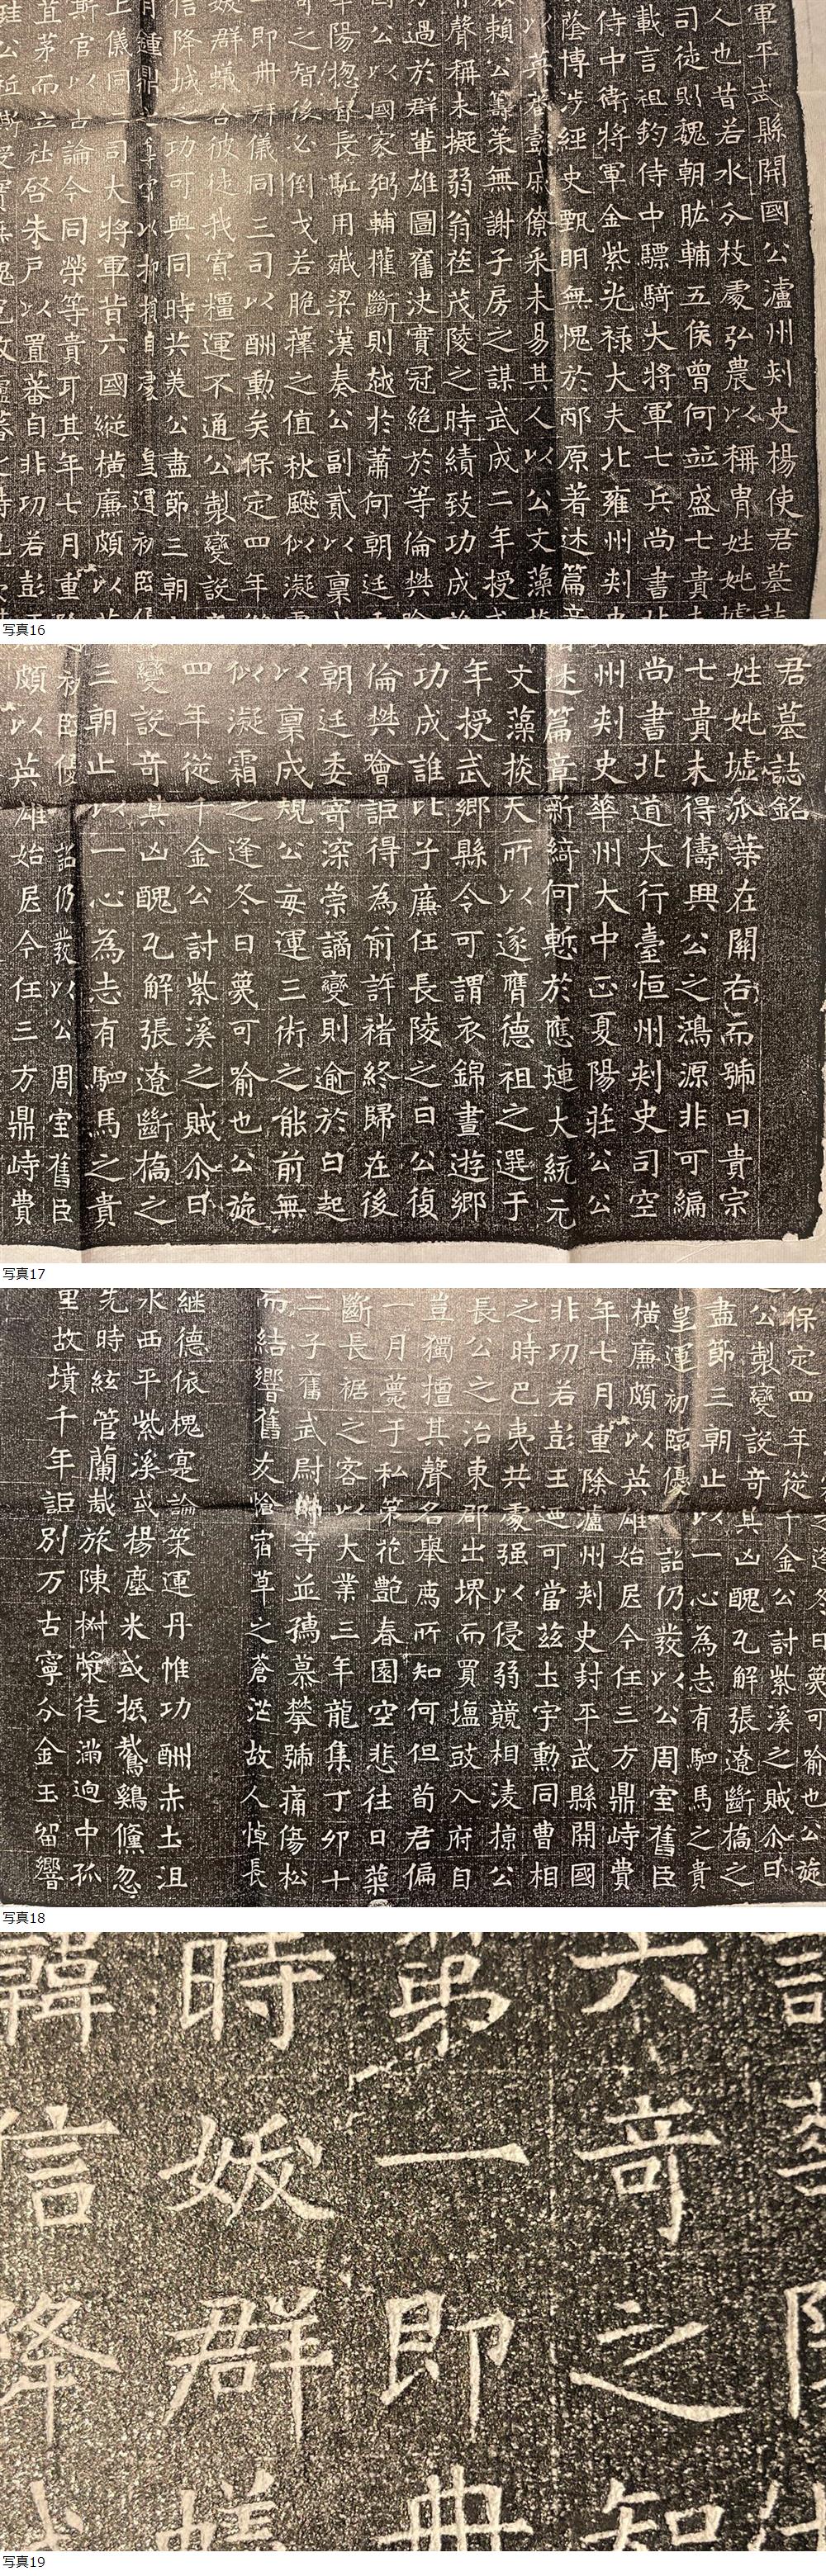 軍平武縣開國公瀘州刾史楊使君墓誌
人也昔若水分枝處弘農以稱胄姓虵墟
司徒則魏朝肱輔五侯曾何並盛七貴未
載言祖鈞侍中驃騎大將軍七兵尚書北
侍中衛將軍金紫光禄大夫北雍州刾史
蔭博涉經史甄明無愧於邴原著述篇章
以英彭戚僚采未易其人以公文藻掞
賴公籌策無謝子房之謀武成二年授武
聲稱未擬弱翁莅茂陵之時績致功成誰
過於群輩雄圖奮決實冠絶於等倫樊噲
公以國家弼輔權斷則越於蕭何朝廷委
陽揔督長駈用殱梁漢奏公副貳以禀成
奇之智後必倒戈若脆蘀之值秋飈似凝霜
即冊拜儀同三司以酬勳矣保定四年從
妭群蟻合彼徒我寡糧運不通公製變設奇
信降城之功可與同時共美公盡節三朝
月鍾鼎之以自處皇運初臨優
上儀同三司大將軍昔六國縱横廉頗以英
斯官以古論今同榮等貴可其年七月重除
茅而立社啓朱戸以置蕃自非功若彭王
写真16
君墓誌銘
姓虵墟派葉在關右而號曰貴宗
七貴未得儔興公之鴻源非可編
尚書北道大行臺恒州刾史司空
州刾史華州大中正夏陽莊公公
述篇章新綺何慙於應璉大統元
文藻掞天所以遂膺德祖之選于
年授武鄉縣令可謂衣錦晝遊鄉
功成誰比子廉任長陵之日公復
倫樊噲詎得為前許褚終歸在後
朝廷委寄深崇譎變則逾於白起
以禀成規公每運三術之能前無
似凝霜之逢冬日奠可喻也公旋
四年從千金公討紫溪之賊尒日
變設奇其凶醜瓦解張遼斷橋之
三朝止以一心為志有駟馬之貴
初臨優詔仍發以公周室舊臣
頗以英雄始居今任三方鼎峙費
写真17
保定四年從千金公討紫溪之賊尒日
公製變設奇其凶醜瓦解張遼斷橋之
盡節三朝止以一心為志有駟馬之貴
皇運初臨優詔仍發以公周室舊臣
横廉頗以英雄始居今任三方鼎峙費
年七月重除瀘州刾史封平武縣開國
非功若彭王迺可當茲圡宇勳同曹相
之時巴夷共處强以侵弱競相淩掠公
長公之治東郡出堺而買塩豉入府自
豈獨擅其聲名舉為所知何但荀君偏
一月薨于私第花艶春園空悲往日藥
斷長裾之客以大業三年龍集丁卯十
二子舊武尉等並孺慕攀號痛傷松
而結響舊友愴宿草之蒼茫故人悼長
継德依槐寔論策運丹惟功酬赤圡沮
水西平紫溪或楊塵米或振鷙鷄儵忽
先時絃管蘭哉旅陳樹檠徒滿逈中孤
里故墳千年詎別万古寧分金玉留響
写真18
六奇之知
弟一即冊
時妭群蟻
韓信降
写真19